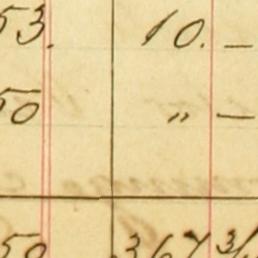 53. 10. —
50 „ —
50 367 3/4